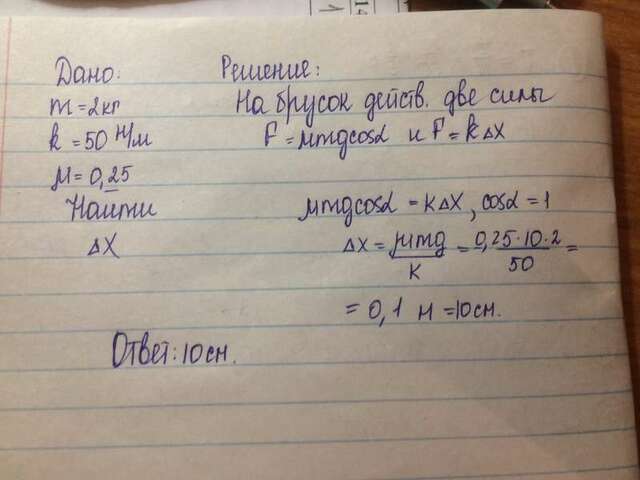 Дано:
m = 2кг
k = 50 Н/м
μ = 0,25
Найти
ΔX
Решение:
На брусок действ. две силы
F = μmgcosα и F = kΔX
μmgcosα = KΔX, cosα = 1
ΔX = μmg/K = 0,25·10·2/50 =
= 0,1 м = 10см.
Ответ: 10см.
14